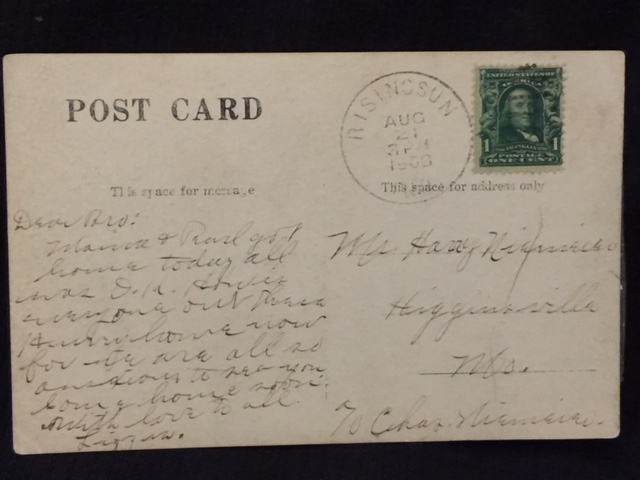 POST CARD
RISINGSUN
AUG
21
3 PM
1908
UNITED STATES OF AMERICA
1 1
FRANKLIN
POSTAGE
ONE CENT
This space for message
This space for address only
Dear Bro:
Mama & Pearl got
home today all
was O.K. Howie
everyone out there
Hurry home now
for we are all so
anxious to see you
Come home soon.
with love to all
Lizzie.
Mr Harry Niemeier
Higginsville
Mo.
℅ Chas. Niemeier.